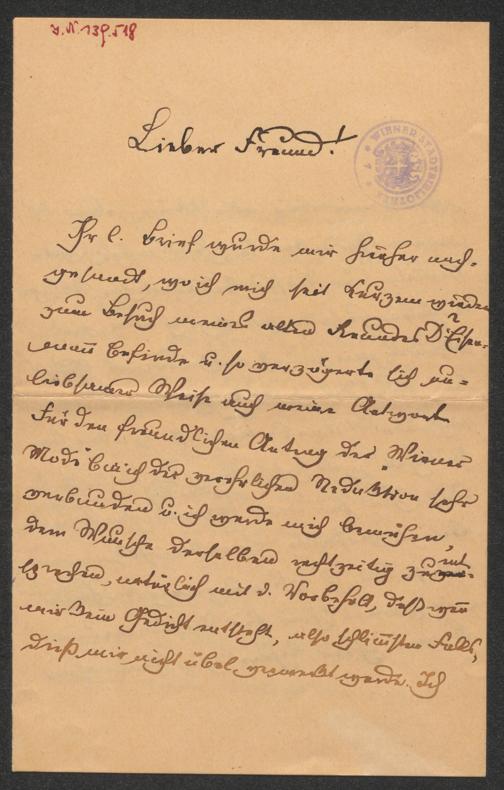 J.N. 139.518
WIENER STADTBIBLIOTHEK
Lieber Freund!
Ihr l. Brief wurde mir hieher nach-
gesandt, wo ich mich seit Kurzem wieder
zum Besuch meines alten Freundes Dr Eisen-
mann befinde u. so verzögerte sich un-
liebsamer Weise auch meine Antwort
Für den freundlichen Antrag der "Wiener
Mode" bin ich der verehrlichen Redaktion sehr
verbunden u. ich werde mich bemühen,
dem Wunsche derselben rechtzeitig zu ent-
sprechen, natürlich mit d. Vorbehalt, daß wenn
mir kein Gedicht entsteht, also schlimmsten Falls,
dieß mir nicht übel vermerkt werde. Ich